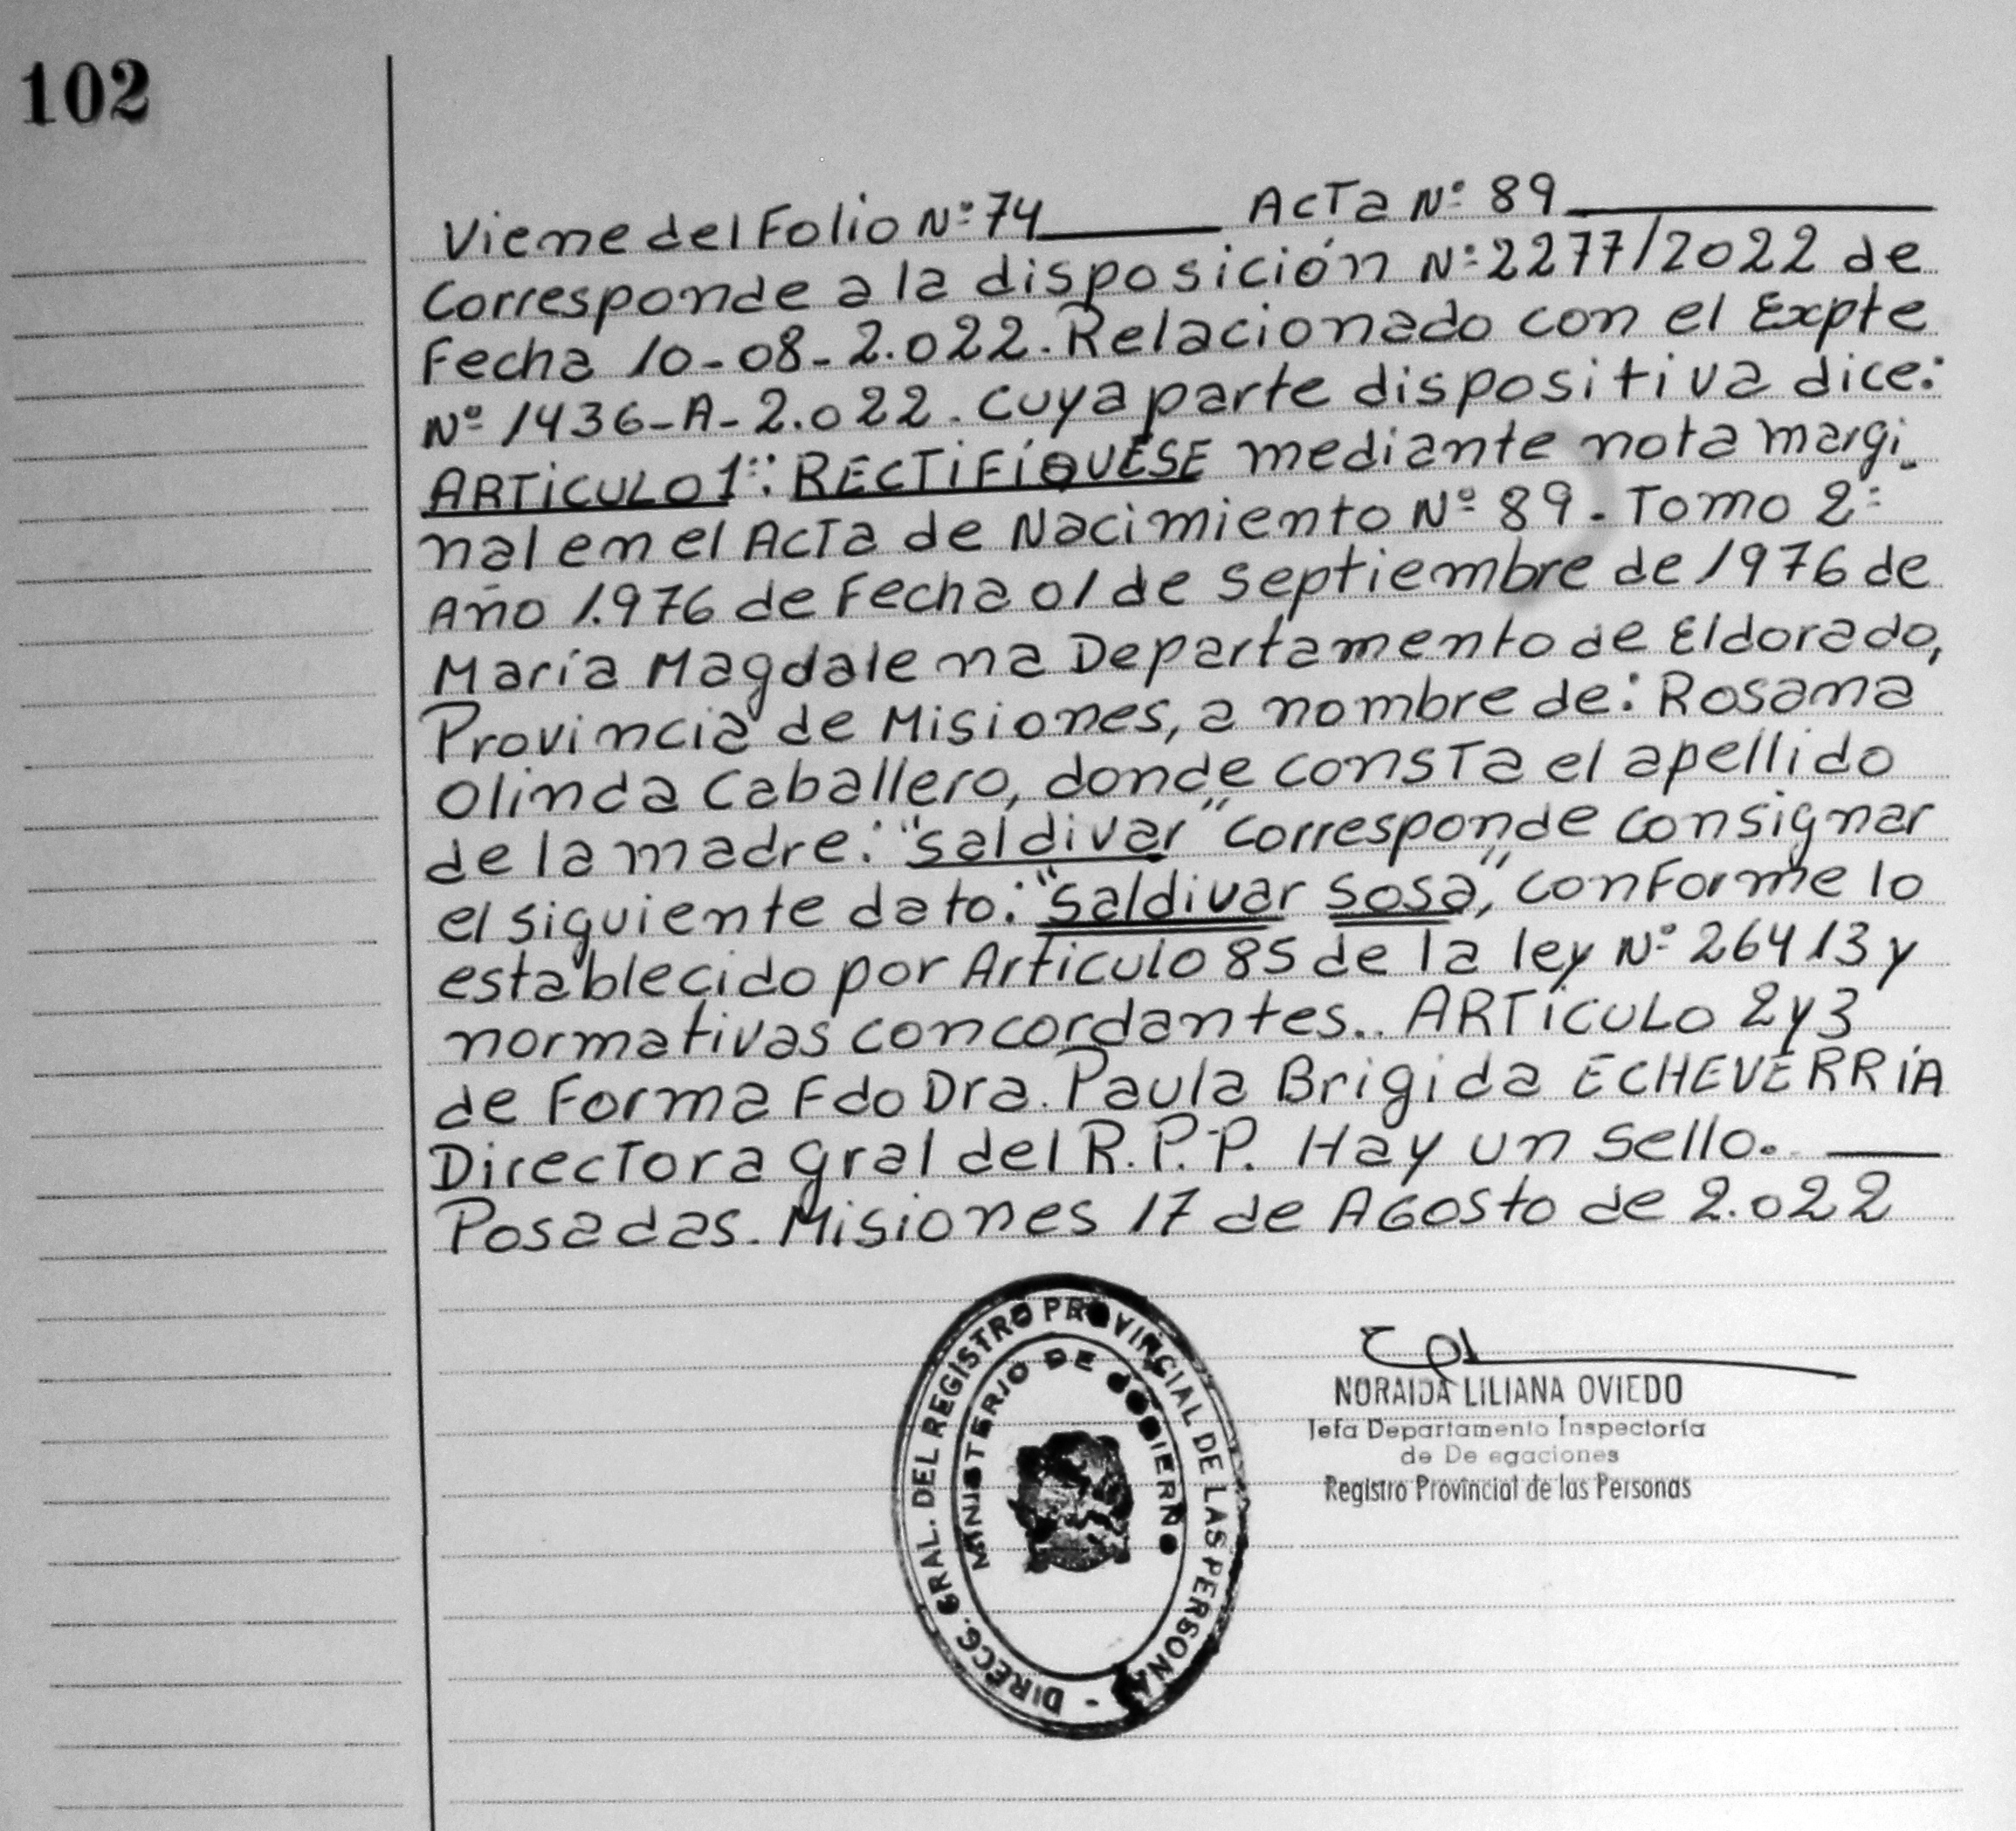 102
Viene del Folio N° 74 Acta N° 89
Corresponde a la disposición N° 2277/2022 de
Fecha 10-08-2.022. Relacionado con el Expte
N° 1436-A-2.022. Cuya parte dispositiva dice:
ARTiCULO 1°: RECTiFíQUESE mediante nota margi
nal en el Acta de Nacimiento N° 89. Tomo 2°
Año 1.976 de Fecha 01 de Septiembre de 1976 de
María Magdalena Departamento de Eldorado,
Provincia de Misiones, a nombre de: Rosana
Olinda Caballero, donde consta el apellido
de la madre: "Saldivar" corresponde consignar
el siguiente dato: "Saldivar Sosa", conforme lo
establecido por Artículo 85 de la ley N° 26413 y
normativas concordantes.. ARTíCULO 2 y 3
de Forma Fdo Dra. Paula Brigida ECHEVERRíA
Directora gral del R.P.P. Hay un sello.
Posadas. Misiones 17 de Agosto de 2.022
DIRECC. GRAL. DEL REGISTRO PROVINCIAL DE LAS PERSONAS -
MINISTERIO DE GOBIERNO
NORAIDA LILIANA OVIEDO
Jefa Departamento Inspectoría
de De egaciones
Registro Provincial de las Personas